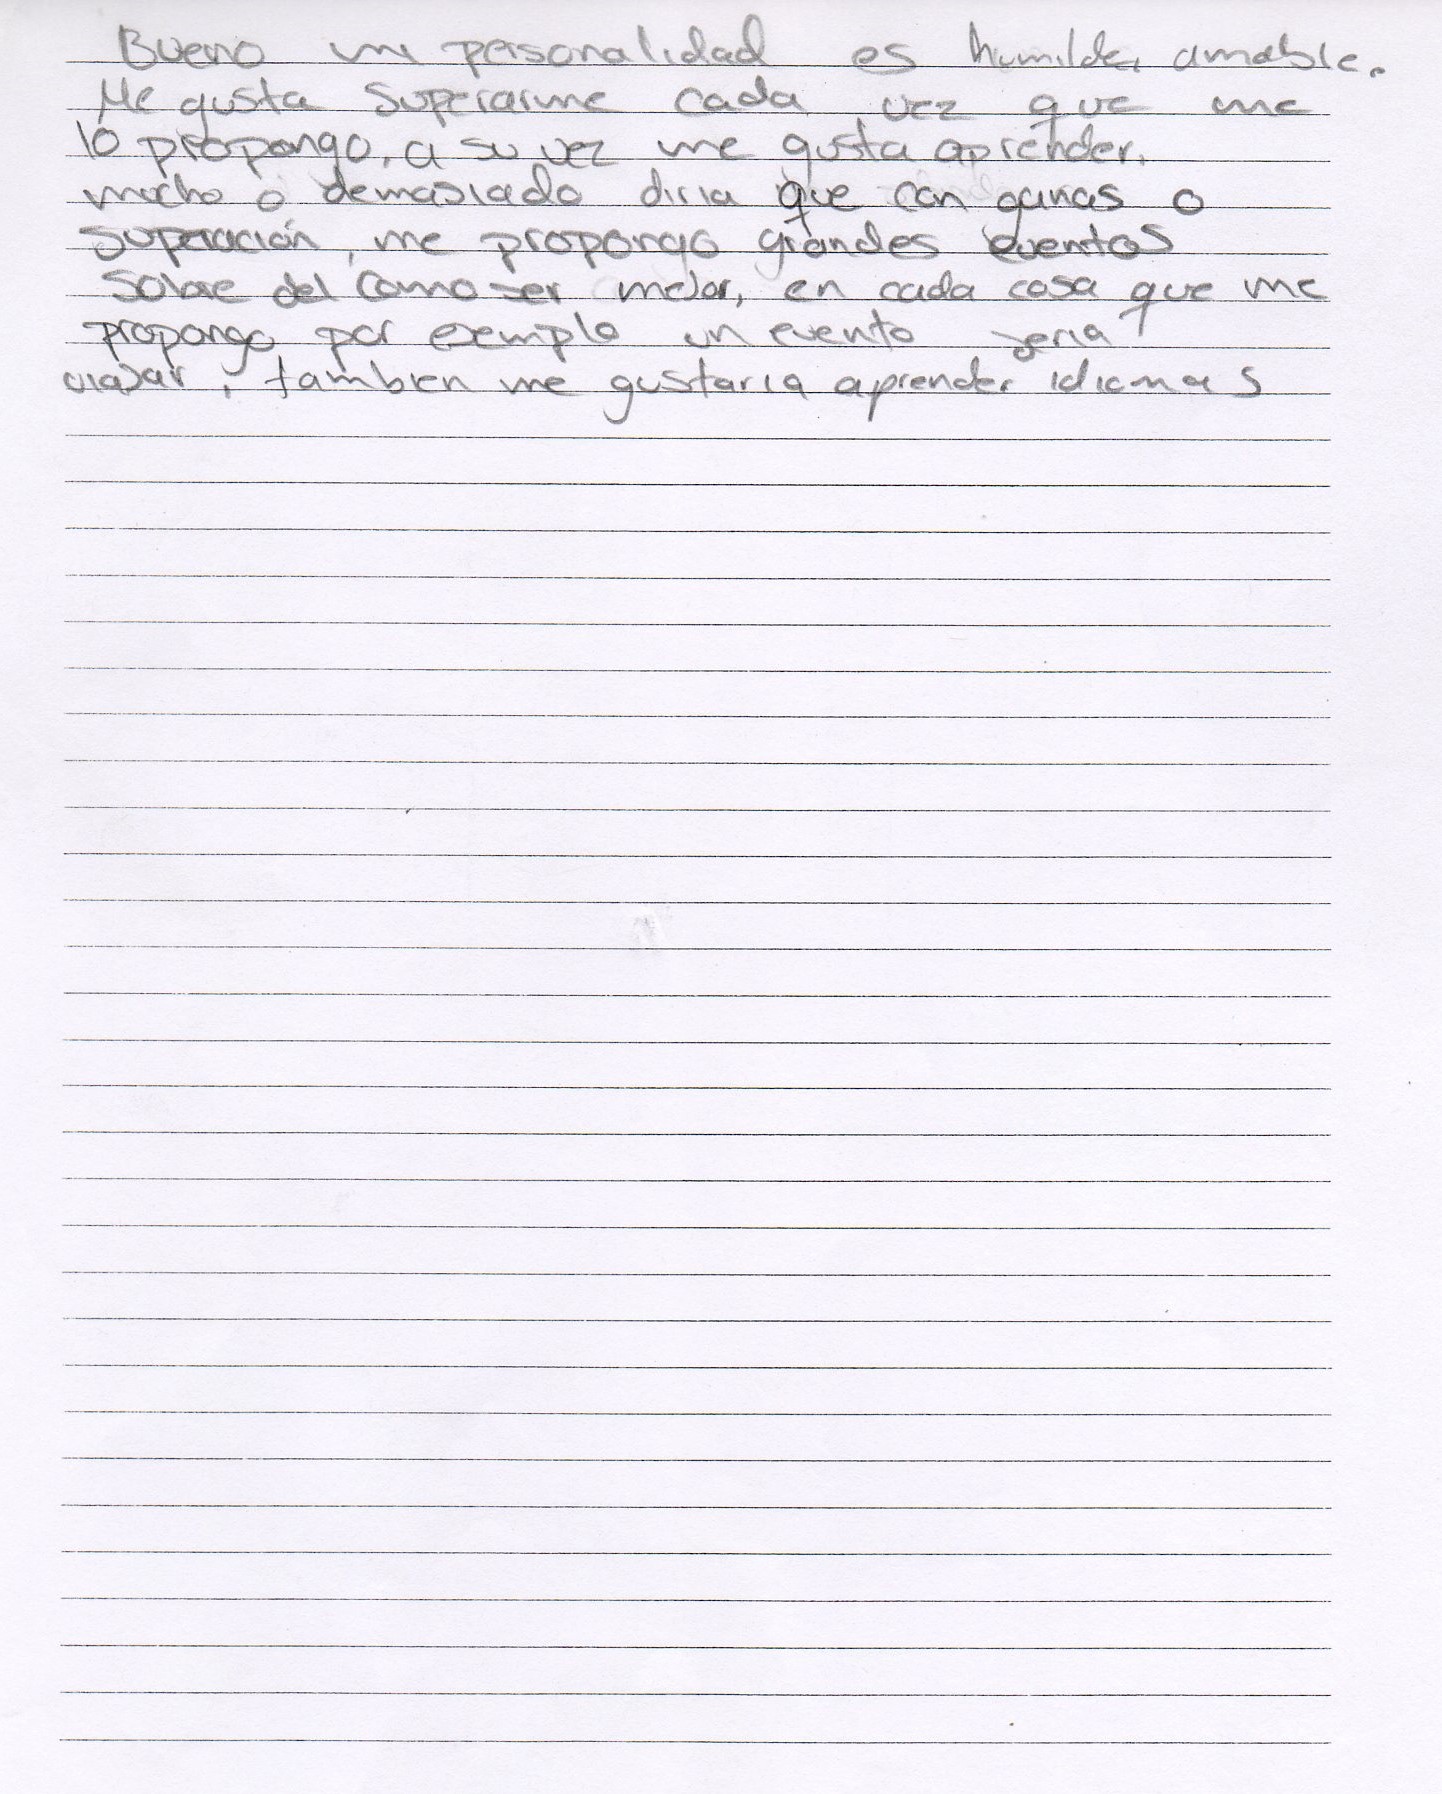 Bueno mi personalidad es humilde, amable.
Me gusta superarme cada vez que me
lo propongo, a su vez me gusta aprender,
mucho o demasiado diria que con ganas o
superación, me propongo grandes eventos
sobre del como ser mejor, en cada cosa que me
propongo por exemplo un evento seria
viajar, tambien me gustaria aprender idiomas